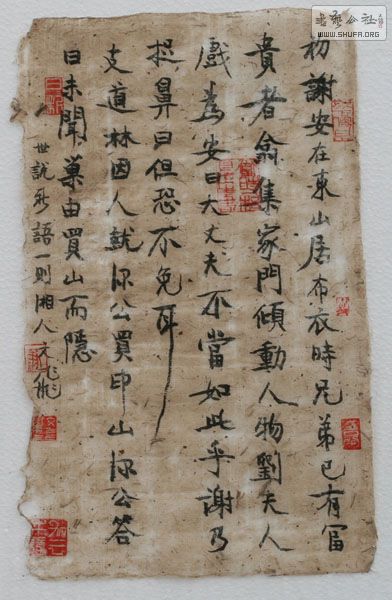 書法公社
WWW.SHUFA.ORG
初謝安在東山居布衣時兄弟已有富
貴者翕集家門傾動人物劉夫人
戲為安曰大丈夫不當如此乎謝乃
捉鼻曰但恐不免耳
支道林因人就深公買印山深公答
曰未聞巢由買山而隱
世說新語一則湘人文